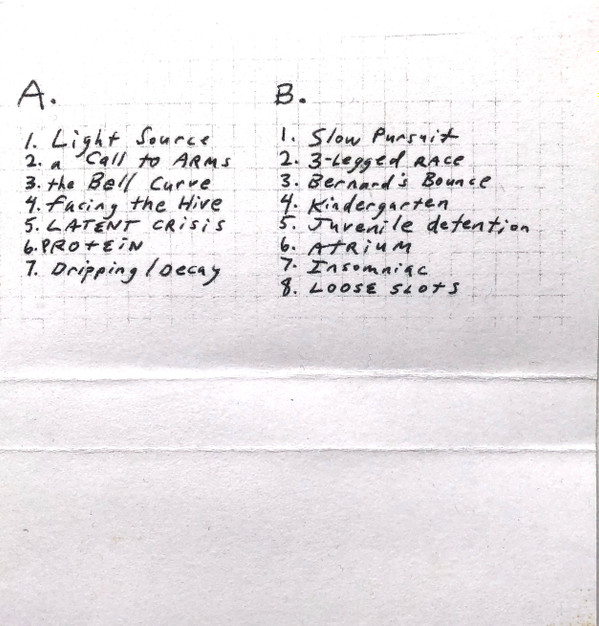 A.
1. Light Source
2. a Call to ARMS
3. the Bell Curve
4. facing the Hive
5. LATENT CRISIS
6. PROtEiN
7. Dripping/Decay
B.
1. Slow Pursuit
2. 3-Legged RACe
3. Bernard's Bounce
4. Kindergarten
5. Juvenile detention
6. AtRIUM
7. Insomniac
8. LOOSE SLOtS